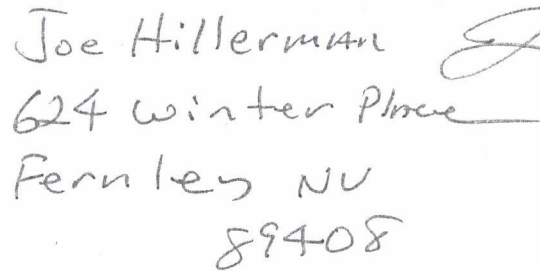 Joe Hillerman
624 Winter Place
Fernley NV
89408